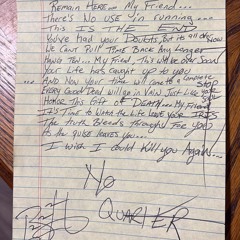 Remain Here... My Friend...
There's No use in running....
This Is The END
We've Had your Doubts But its all
We Can't Pull Time Back Any Longer
Hang ten... My Friend, This will be over Soon
Your Life Has Caught up to you
And Now your Time will come to a Complete STOP
Every Good Deed will go in Vain Just Like your Soul
Honor This Gift of DEATH... My Friend
It's Time to Watch the Life Leave your IRIS
The truth Bleeds Through For you
As the pulse leaves you...
I wish I could Kill you Again...
No
QUARTER